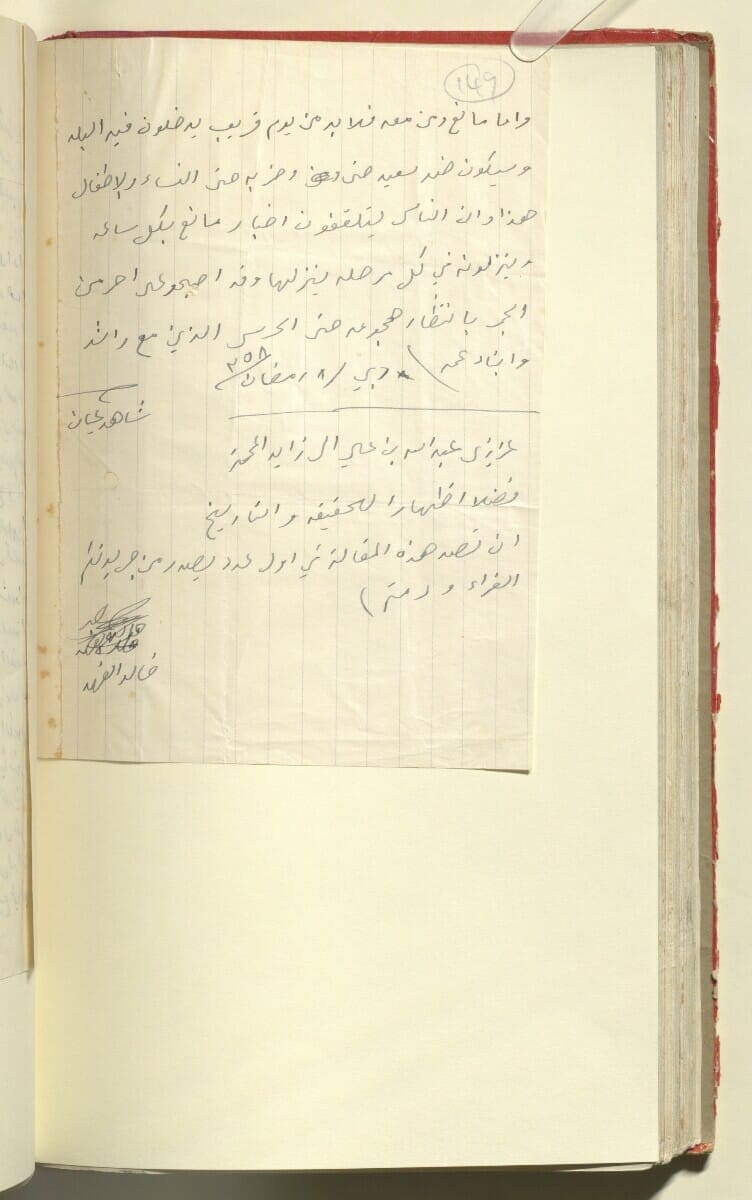 149
واما مانع ومن معه فلا بد من يوم قريب يدخلون فيه البلد
وسيكون ضد سعيد حتى وحزبه حتى النساء والاطفال
هذا وان الناس ليتلقفون اخبار مانع بكل ساعه
وينزلونه في كل مرحله ينزلها وقد اصبحو على احر من
الجمر بانتظار هجومه حتى الحرس الذين مع راشد
وابناء عمه ) دبي / ٨ رمضان / ٣٥٨
شاهد عيان
عزيزي عبد الله بن علي ال زايد المحترم
فضلا اظهارا للحقيقه والتاريخ
ان هذه المقالة في اول عدد يصدر من جريدتكم
الغراء ودمتم )
خالد الفهد